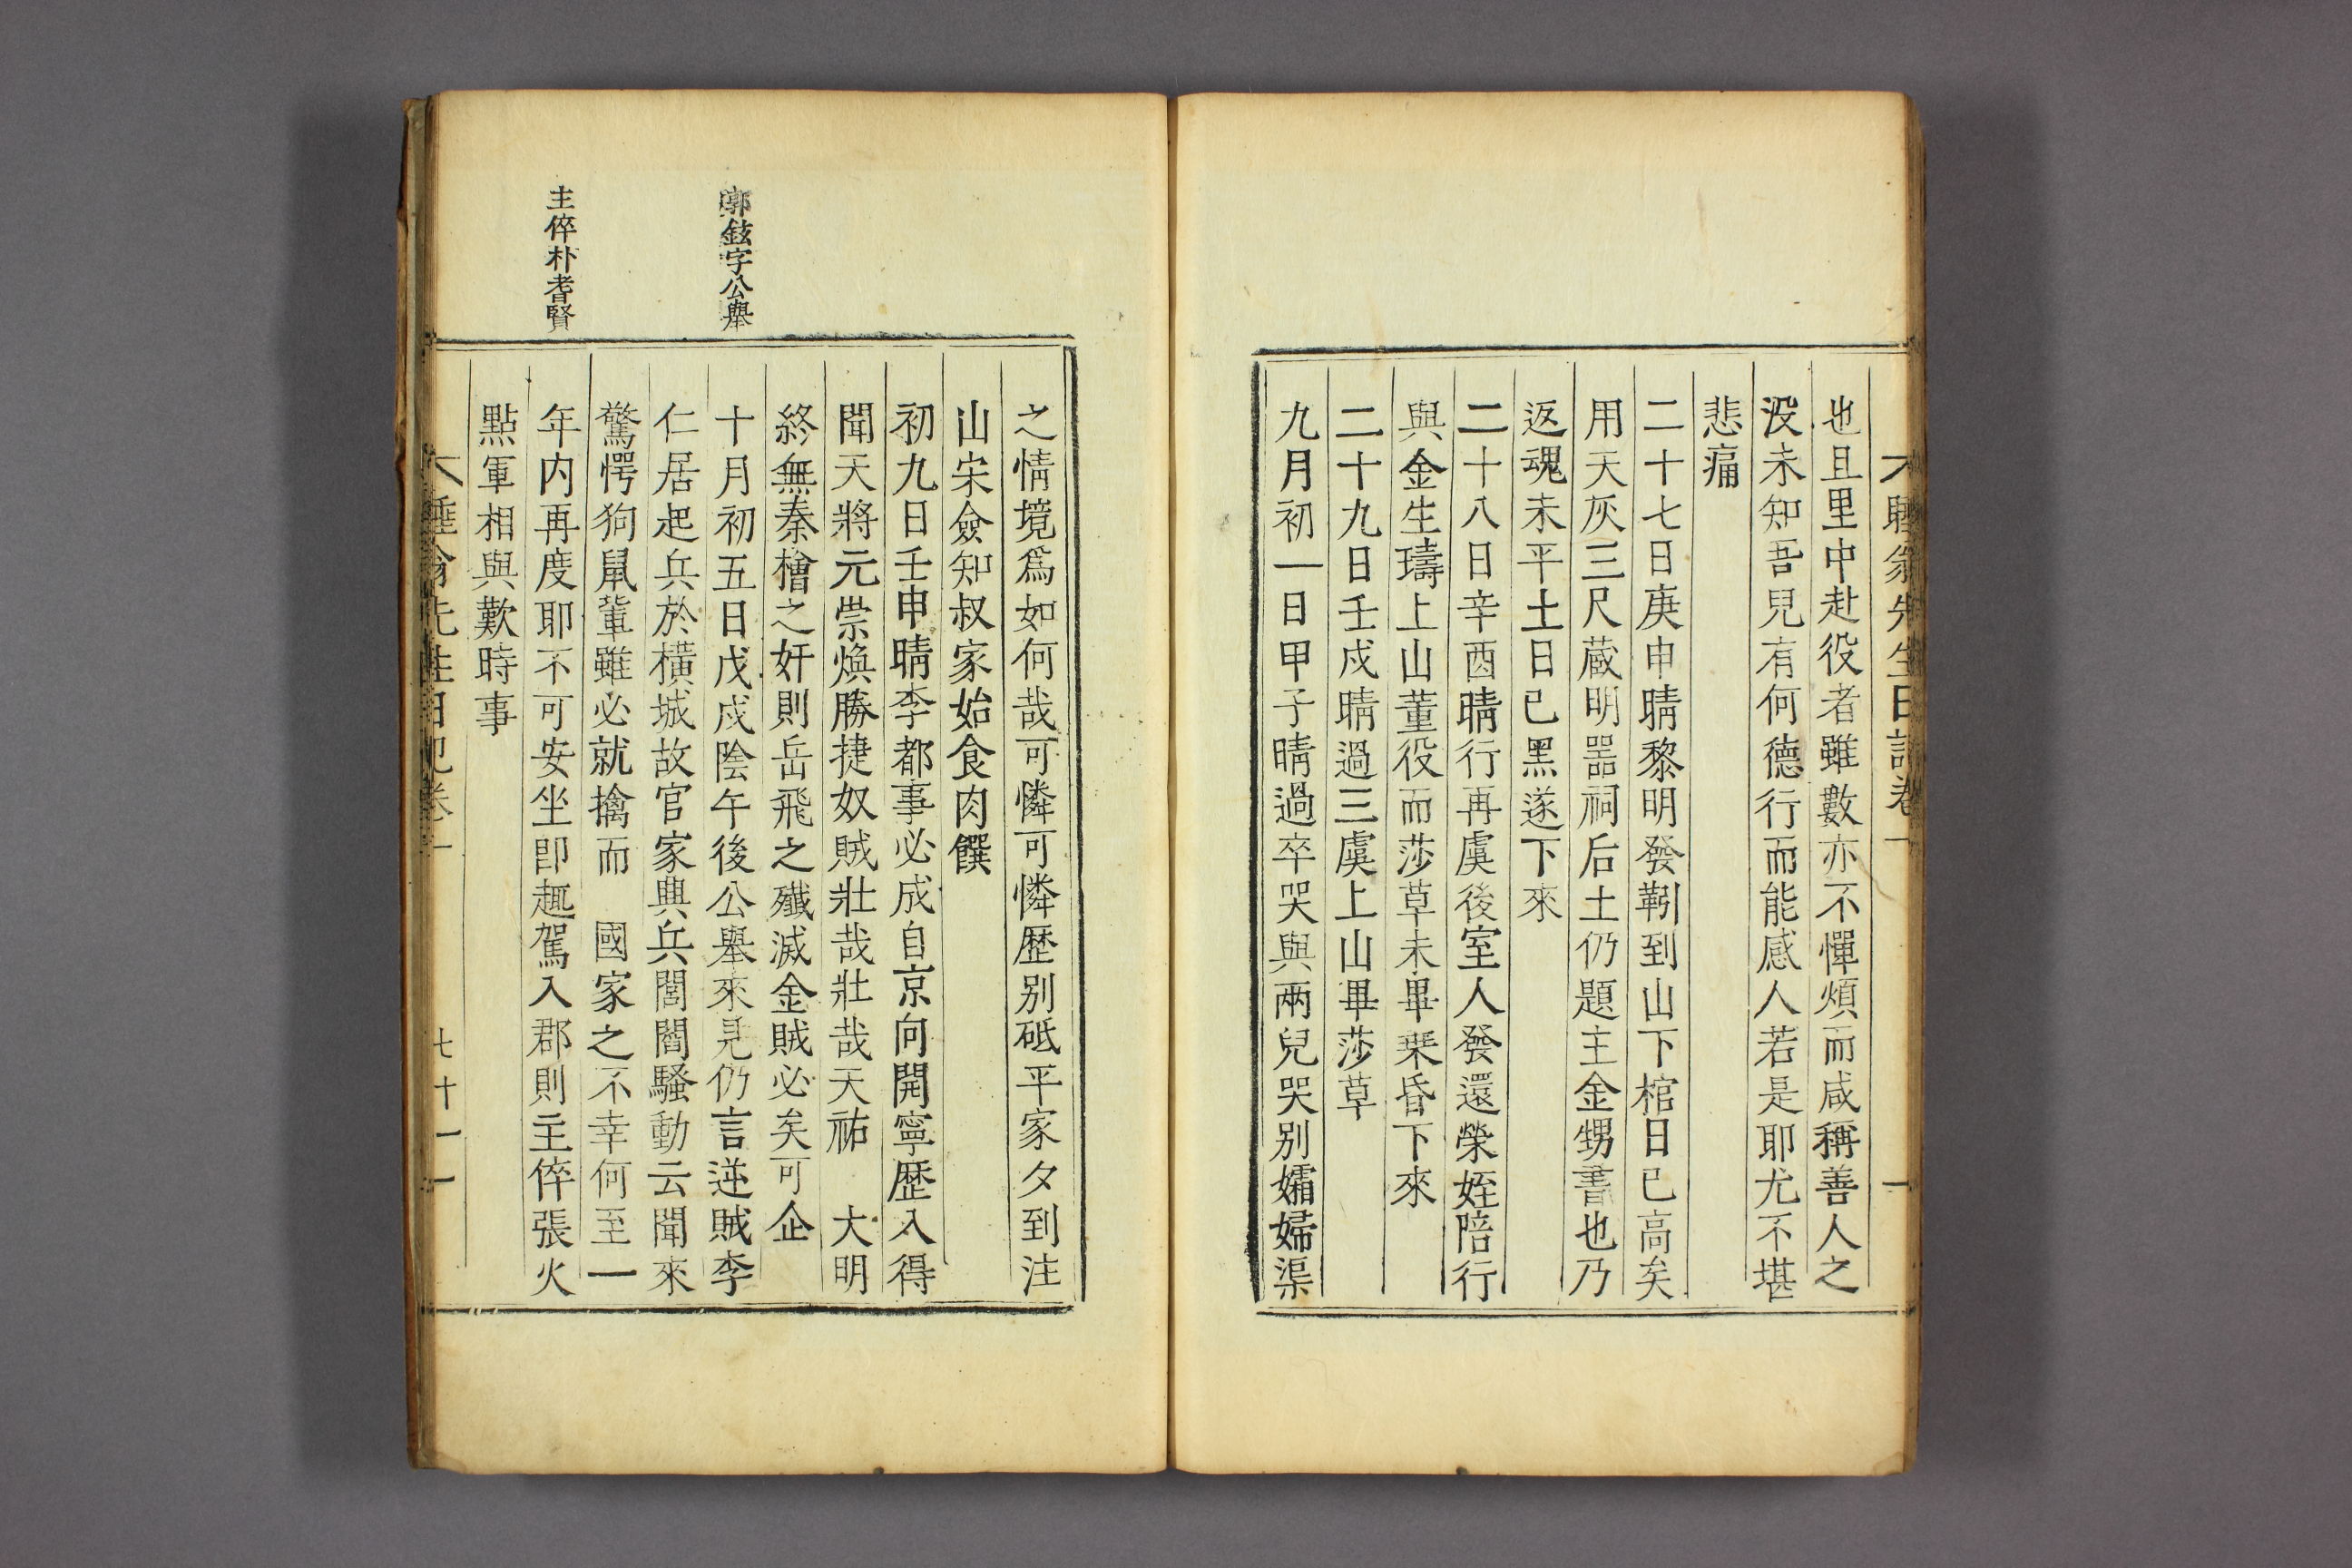 也且里中赴役者雖數亦不憚煩而咸稱善人之
没未知吾見有何德行而能感人若是耶尤不堪
悲痛
二十七日庚申晴黎明發靷到山下棺日已高矣
用天灰三尺蔵明器祠后土仍題主金甥書也乃
返魂未平土日已黑遂下來
二十八日辛酉晴行再虞後室人發還榮姪陪行
與金生璹上山董役而莎草未畢乗昏下來
二十九日壬戌晴過三虞上山畢莎草
九月初一日甲子晴過卒哭與兩兒哭别孀婦渠
之情境爲如何哉可憐可憐歷别砥平家夕到注
山宋僉知叔家始食肉饌
初九日壬申晴李都事必成自京向開寧歷入得
聞天將元崇煥勝捷奴賊壯哉壯哉天祐 大明
終無秦檜之奸則岳飛之殱滅金賊必矣可企
十月初五日戊戌陰午後公舉來見仍言逆賊李
仁居起兵於橫城故官家興兵閭閻騷動云聞來
驚愕狗鼠輩雖必就擒而 國家之不幸何至一
年内再度耶不可安坐卽趣駕入郡則主倅張火
點軍相與歎時事
郭鉉字公舉
主倅朴耆賢
睡翁先生日記卷一
七十一